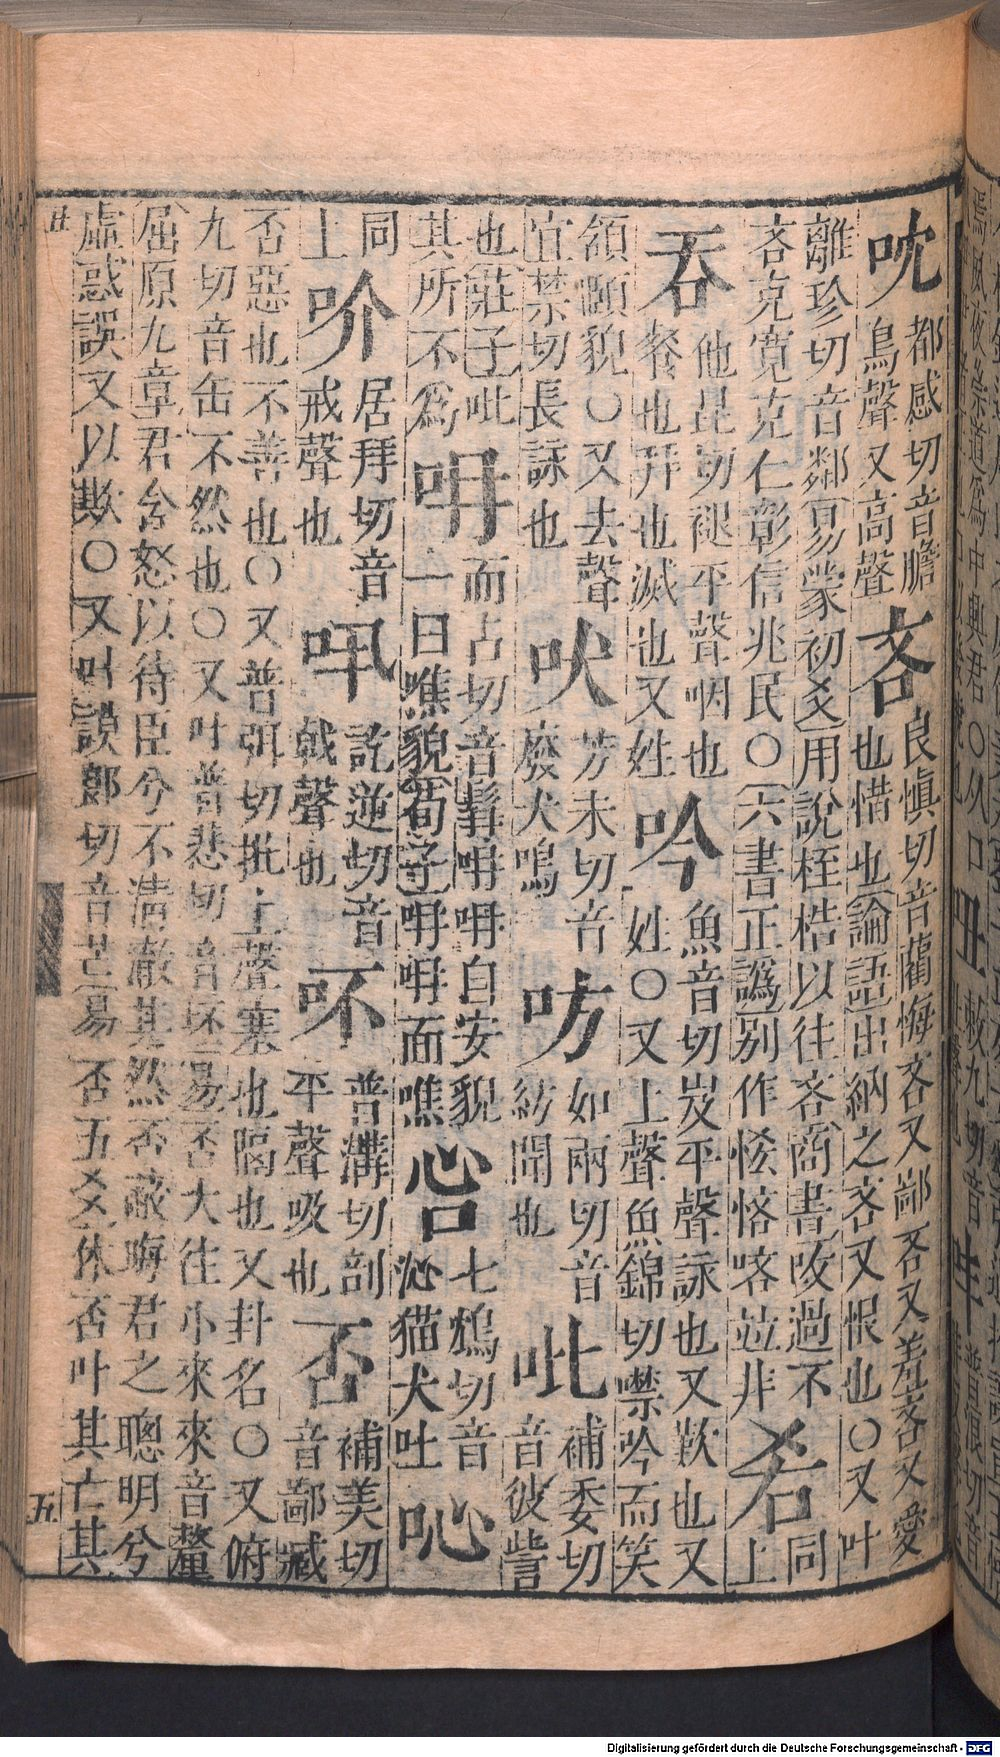 㕪都感切音膽
鳥聲又高聲
吝良慎切音藺悔吝又鄙吝又羞吝又愛
也惜也論語出納之吝又恨也○又叶
離珍切音鄰易蒙初爻用說桎梏以往吝商書改過不
吝克寬克仁彰信兆民○六書正譌別作悋㤩咯竝非
同
上
吞他昆切褪平聲咽也
餐也幷也滅也又姓
吟魚音切岌平聲詠也又歎也又
姓○又上聲魚錦切噤吟而笑
頷頤貌○又去聲
宜禁切長詠也
吠芳未切音
廢犬鳴
㕫如兩切音
紡聞也
吡補委切
音彼訾
也莊子吡
其所不為
呥而占切音髥呥呥自安貌
一曰噍貌荀子呥呥面噍
吢七鴆切音
沁猫犬吐
吣同
上
吤居拜切音
戒聲也
訖逆切音
戟聲也
吥普溝切剖
平聲吸也
否補美切
音鄙臧
否惡也不善也○又普弭切批上聲塞也隔也又卦名○又俯
九切音缶不然也○又叶普悲切音坯易否大往小來來音釐
屈原九章君含怒以待臣兮不清澈其然否蔽晦君之聰明兮
虛惑誤又以欺○又叶謨郎切音芒易否五爻休否叶其亡其
丑
五
Digitalisierung gefördert durch die Deutsche Forschungsgemeinschaft - DFG